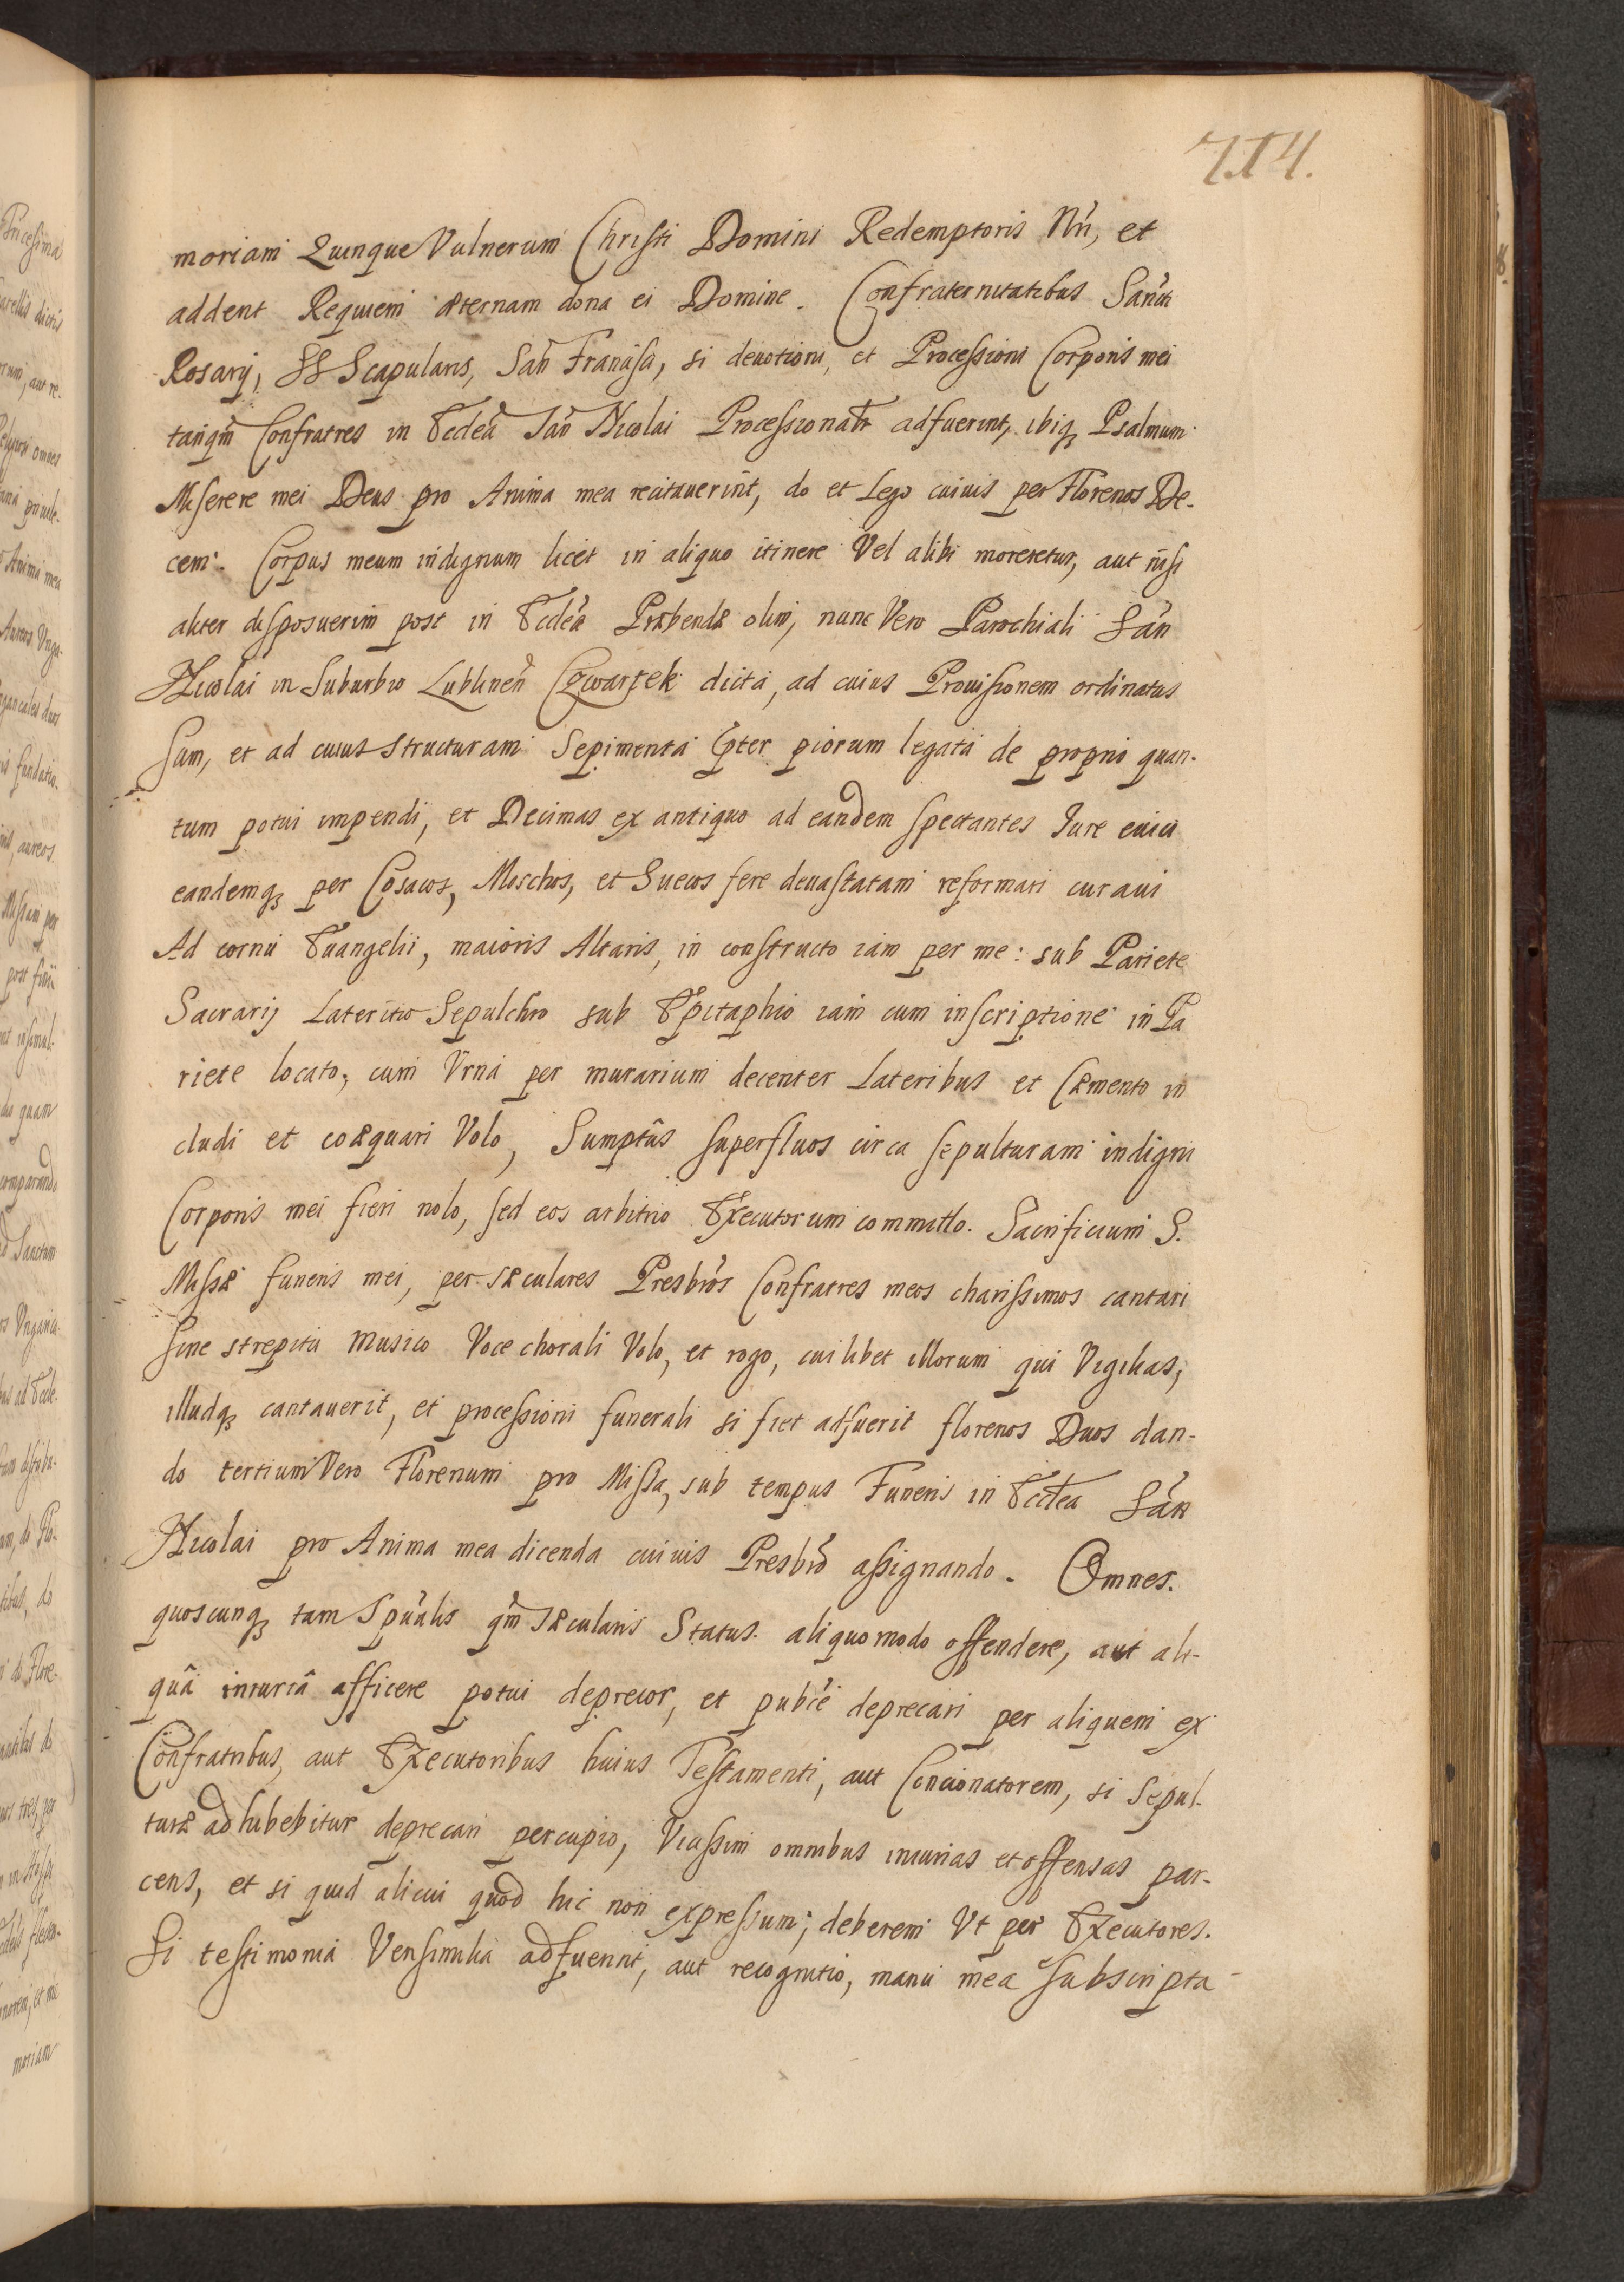 714.
moriam Quinque Vulnerum Christi Domini Redemptoris Nri, et
addent Requiem æternam dona ei Domine. Confraternitatibus Sancti
Rosarij, SS Scapularis, San Francisci, si deuotioni, et Processioni Corporis mei
tanqm Confratres in Eccleã San Nicolai Processionalr adfuerint, ibiq Psalmum
Miserere mei Deus pro Anima mea recitauerint, do et Lego cuiuis per Florenos De-
cem. Corpus meum indignum licet in aliquo itinere Vel alibi moreretur, aut nisi
aliter disposuerim post in Eccleã Præbendæ olim, nunc Vero Parochiali San
Nicolai in Suburbio Lublinen Czwartek dicta, ad cuius Prouisionem ordinatus
sum, et ad cuius structuram Sepimenta Cpter piorum legata de proprio quan-
tum potui impendi, et Decimas ex antiquo ad eandem spectantes Jure euici
eandemq per Cosacos, Moschos, et Suecos fere deuastatam reformari curaui
Ad cornu Euangelii, maioris Altaris, in constructo iam per me: sub Pariete
Sacrarij Lateritio Sepulchro sub Epitaphio iam cum inscriptione in Pa
riete locato, cum Vrna per murarium decenter Lateribus et Cæmento in
cludi et coæquari Volo, Sumptûs superfluos circa sepulturam indigni
Corporis mei fieri nolo, sed eos arbitrio Executorum committo. Sacrificium S.
Missæ funeris mei, per sæculares Presbros Confratres meos charissimos cantari
sine strepitu musico Voce chorali Volo, et rogo, cuilibet illorum qui Vigilias,
illudq cantauerit, et processioni funerali si fiet adfuerit florenos Duos dan-
do tertium Vero Florenum pro Missa, sub tempus Funeris in Ecclea San
Nicolai pro Anima mea dicenda cuiuis Presbro assignando. Omnes.
quoscunq tam Spualis qm sæcularis Status aliquo modo offendere, aut ali-
quâ iniuriâ afficere potui deprecor, et pubce deprecari per aliquem ex
Confratribus, aut Executoribus huius Testamenti, aut Concionatorem, si Sepul-
turæ adhibebitur deprecari percupio, Vicissim omnibus iniurias et offensas par-
cens, et si quid alicui quod hic non expressum; deberem Vt per Executores.
Si testimonia Verisimilia adfuerint, aut recognitio, manu mea subscripta